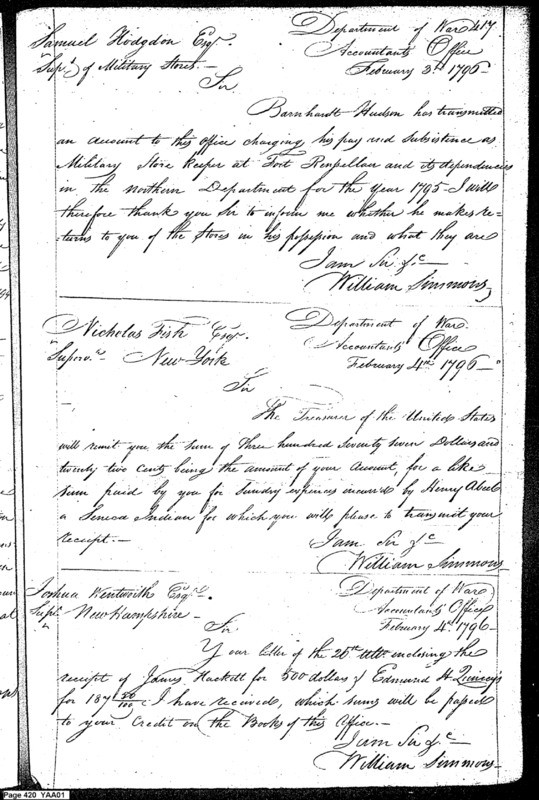 Department of War 417
Samuel Hodgdon Esqr.
Accountants Office
Supt. of Military Stores—
February 3d. 1796—
Sir
Barnhardt Hudson has transmitted
an account to this office charging his pay and subsistence as
Military Store keeper at Fort Renssellaer and its dependencies
in the northern Department for the year 1795—I will
therefore thank you Sir to inform me whether he makes re-
turns to you of the Stores in his possession and what they are
I am Sir &c—
William Simmons
Nicholas Fish Esqr.
Department of War
Accountants Office
Supervr. New York
February 4th 1796—
Sir
The Treasurer of the United States
will remit you the sum of three hundred seventy seven Dollars and
twenty two Cents being the amount of your Account, for a like
sum paid by you for Sundry expences incurred by Henry Abeel
a Seneca Indian for which you will please to transmit your
receipt.—
I am Sir &c
William Simmons
Joshua Wentworth Esqr.
Department of War
Accountants Office
Supt. New Hampshire—
February 4th. 1796—
Sir
Your Letter of the 25th. ulto. enclosing the
receipt of James Hackett for 500 dollars & Edmund H. Quincy's
for 187 50/100 : I have received, which sums will be passed
to your Credit on the Books of this Office.—
I am Sir &c—
William Simmons—
Page 420 YAA01